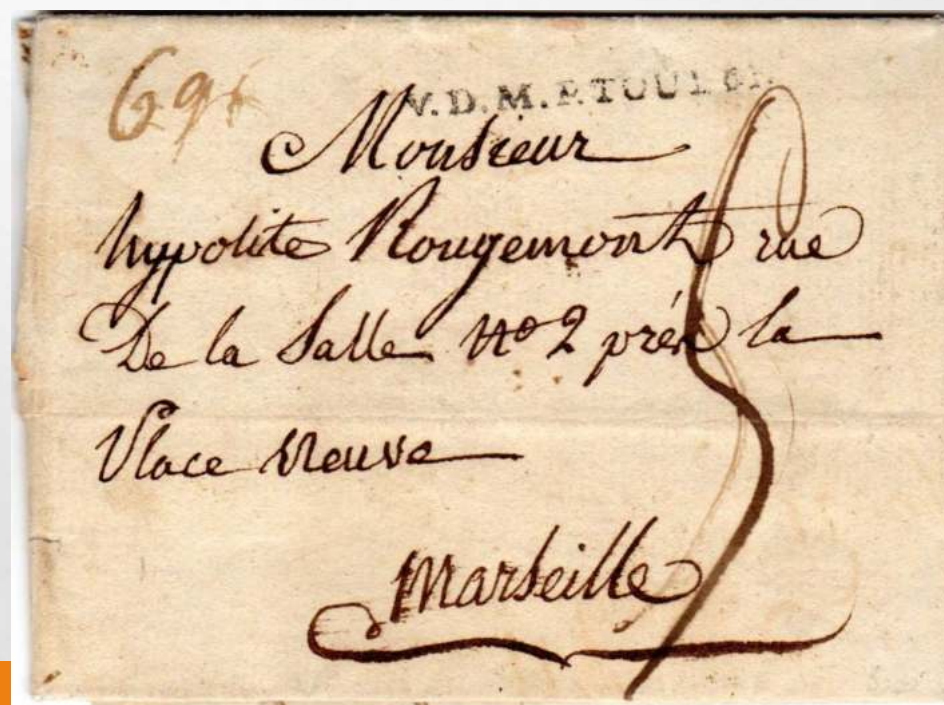 69
V.D.M.F. TOULON
Monsieur
hypolite Rougemont rue
De la Salle N° 2 prés la
Place Neuve
Marseille